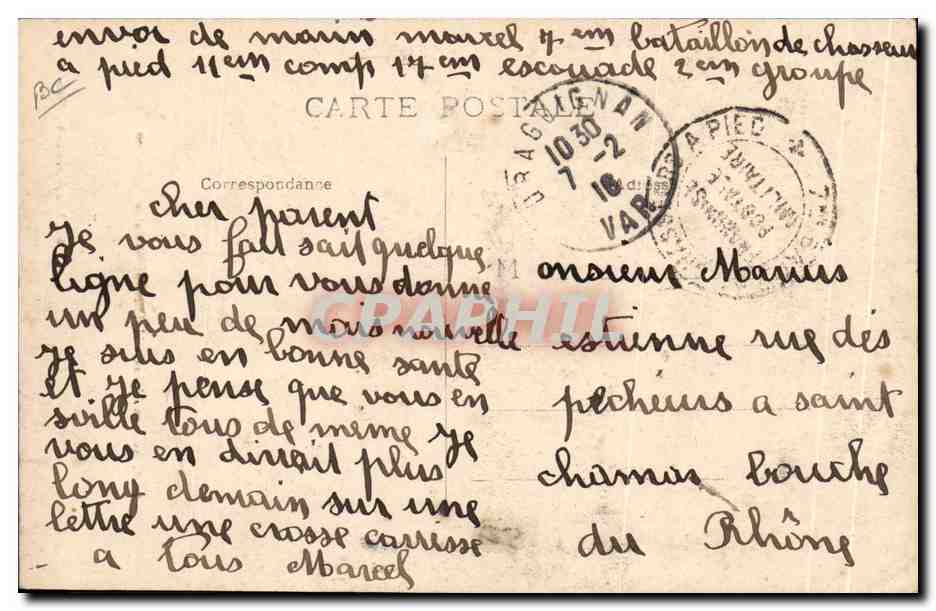 envoi de marin marcel 7em bataillon de chasseur
a pied 11em comp 17em escouade 2em groupe
BC
CARTE POSTALE
DRAGUIGNAN
10 30
7 -2
16
VAR
A PIED
MILITAIRE
Correspondance
Adresse
cher parent
Je vous fait sait quelque
ligne pour vous donne
un peu de mais nouvelle
je suis en bonne sante
et je pense que vous en
sville tous de même je
vous en dirait plus
long demain sur une
lettre une crosse carisse
a tous Marcel
Monsieur Marius
estienne rue dés
pécheurs a saint
chamas bouche
du Rhône
CPARHIL